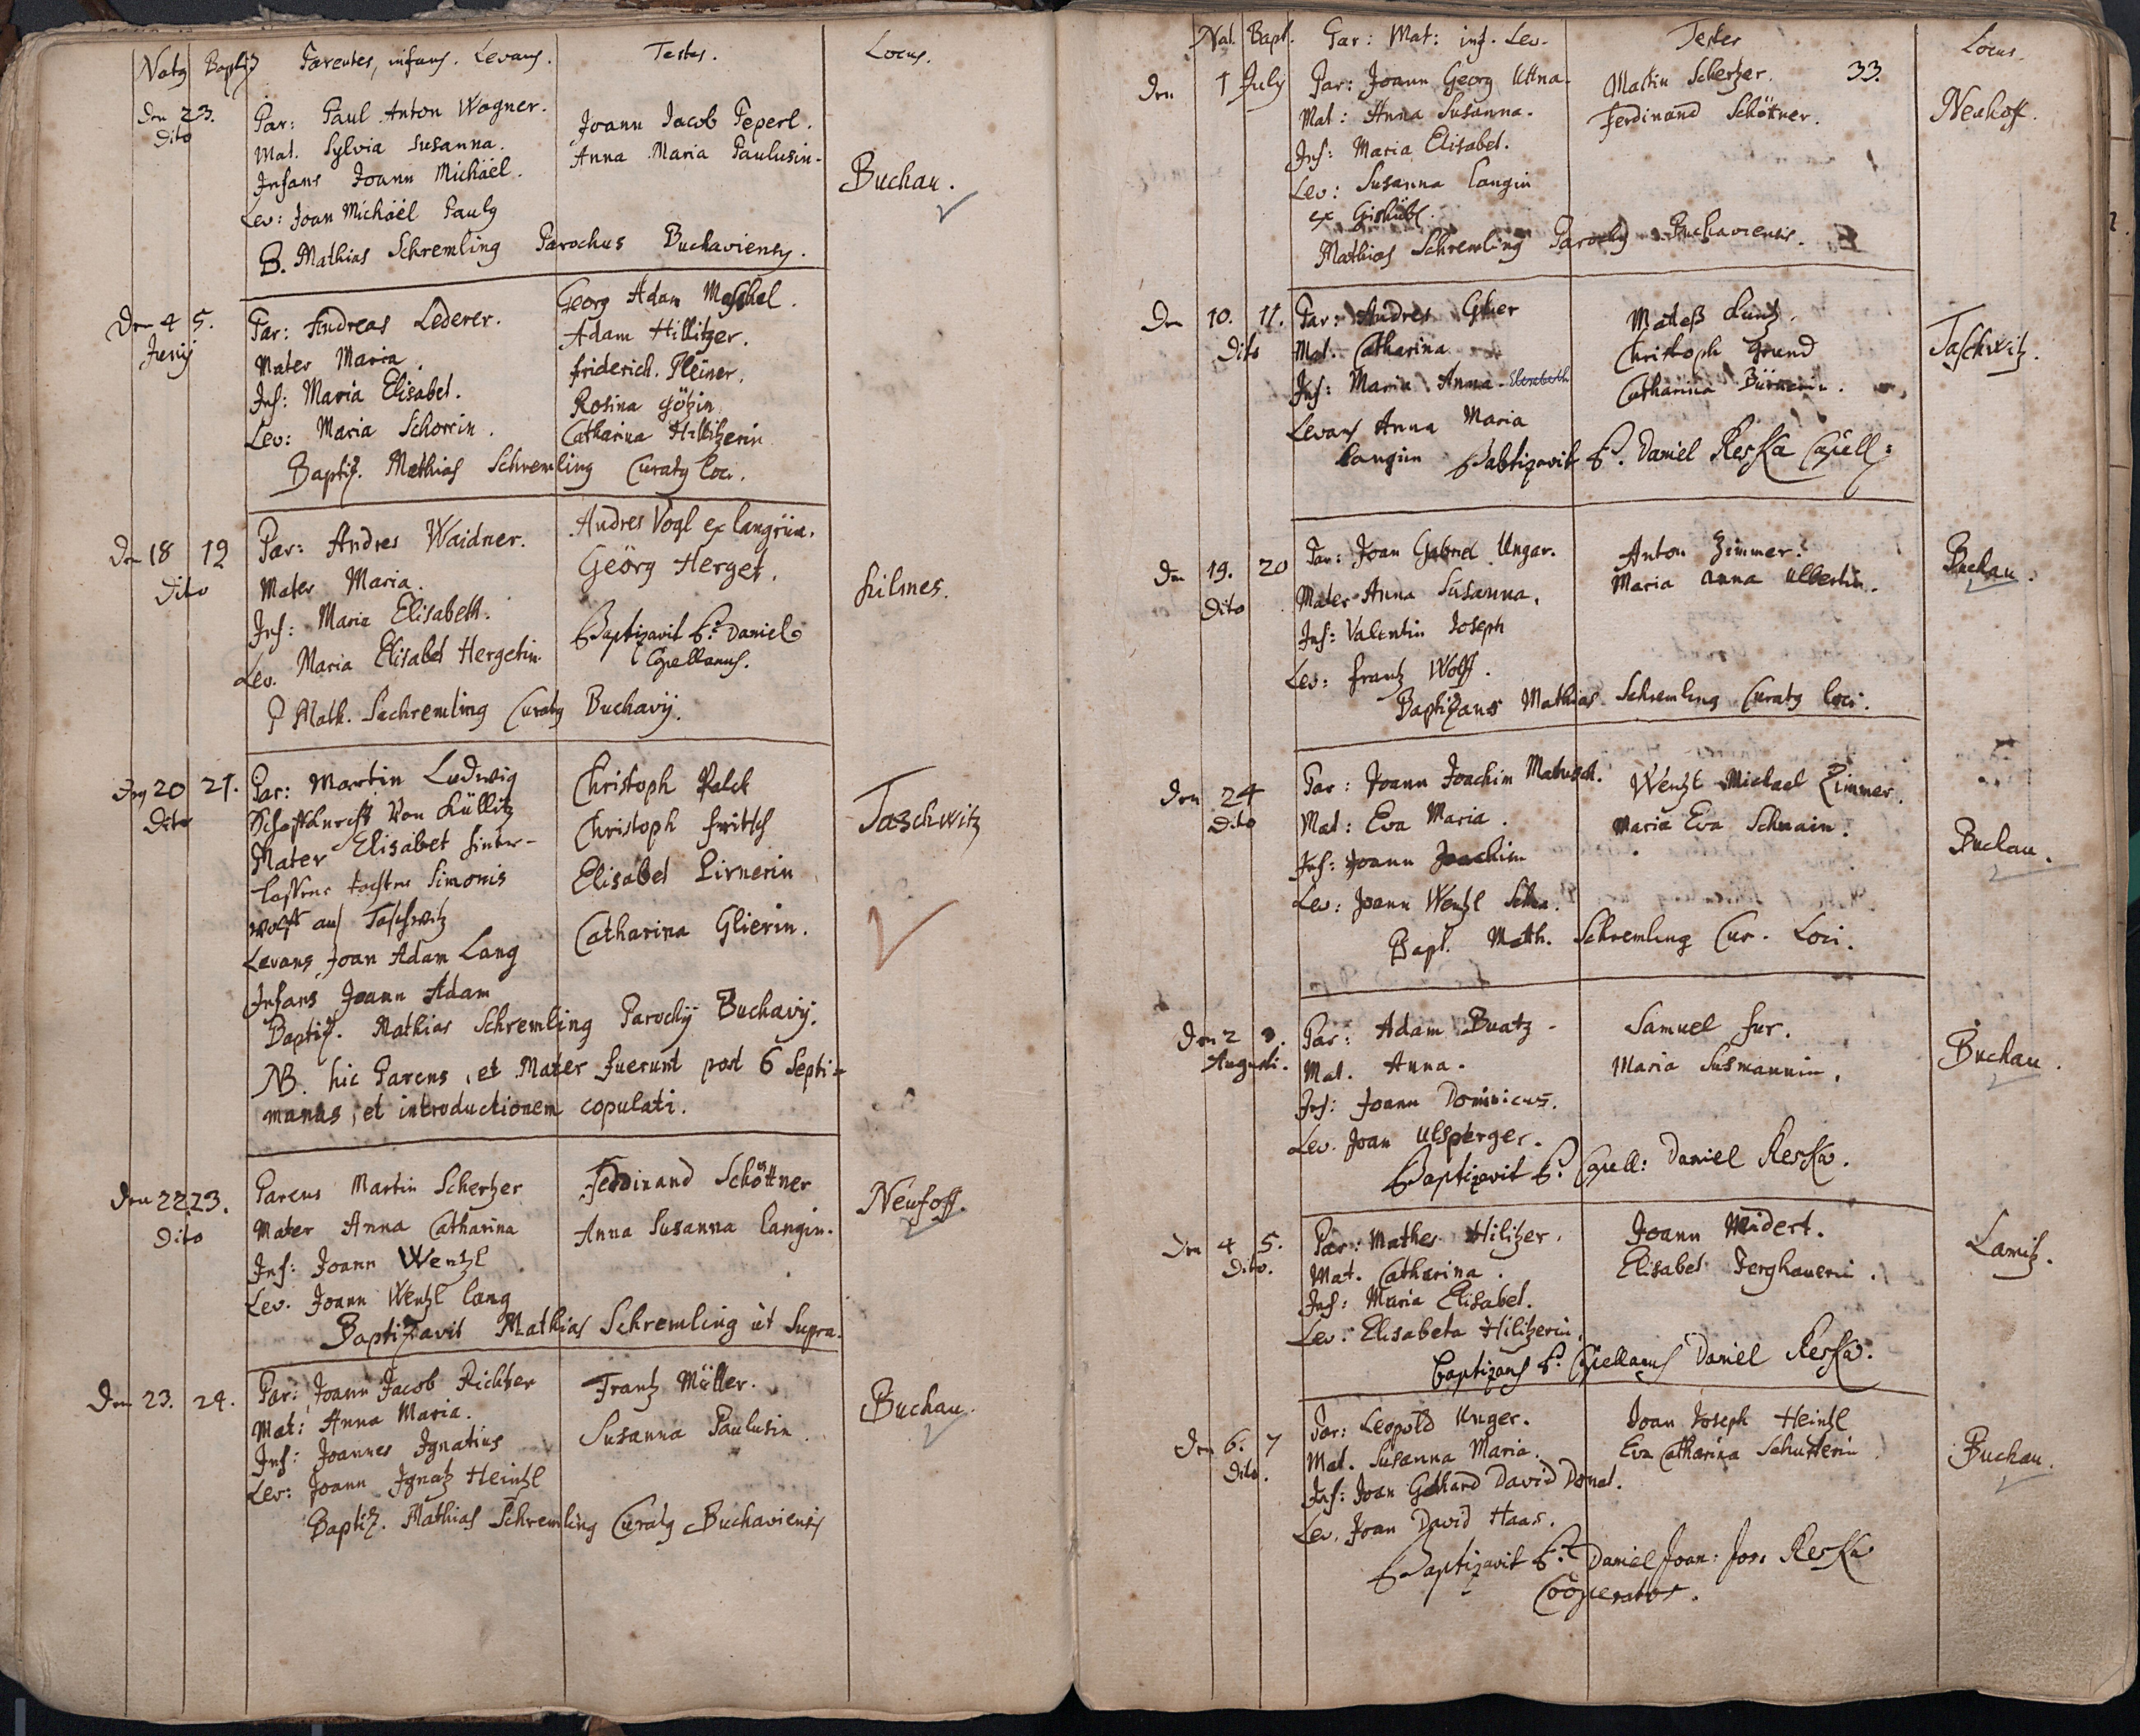 Natg Baptiz Parentes, infans. Levans. Testes. Locus.
Den 23. Par: Paul Anton Wagner. Joann Jacob Peperl.
Dito Mat. Sylvia Susanna. Anna Maria Paulusin.
Infans Joann Michäel. Buchau.
Lev: Joan Michäël Paulg
B. Mathias Schremling Parochus Buchaviensg.
Den 4 5. Par: Andreas Lederer. Georg Adam Maschel.
Junij Mater Maria. Adam Hillitzer.
Inf: Maria Elisabet. friderich. Pleiner.
Lev: Maria Schorrin. Rosina Götzin
Catharina Hillitzerin
Baptiz. Mathias Schremling Curatg loci.
Den 18 19 Par: Andres Waidner. Andres Vogl ex langrün.
Dito Mater Maria. Geörg Herget.
Inf: Maria Elisabeth. hilmes.
Lev. Maria Elisabet Hergetin. Baptizavit P. Daniel
Capellanus.
P Math. Sechremling Curatg Buchavij.
Den 20 21. Par: Martin Ludwig Christoph Palck
Dito Schaffknecht von Lüllitz Christoph fritsch Taschwitz
Mater Elisabet hinter- Elisabet Pirnerin
lassene tochter Simonis Catharina Glierin.
Wolff aus Taschwitz
Levans Joan Adam Lang
Infans Joann Adam
Baptiz. Mathias Schremling Parochij Buchavij.
NB. hic Parens, et Mater fuerunt post 6 Septi-
manas, et introductionem copulati.
Den 22 23. Parens Martin Schertzer Ferdinand Schöttner Neuhoff.
Dito Mater Anna Catharina Anna Susanna langin.
Inf: Joann Wentzl
Lev. Joann Wentzl lang
Baptizavit Mathias Schremling ut supra.
Den 23. 24. Par: Joann Jacob Richter Frantz Müller. Buchau.
Mat: Anna Maria. Susanna Paulusin.
Inf: Joannes Ignatius
Lev: Joann Ignatz Heintzl
Baptiz. Mathias Schremling Curatg Buchaviensis
Nat. Bapt. Par: Mat: inf. Lev. Testes Locus.
33.
Den 1 July Par: Joann Georg Uttna. Martin Schertzer. Neuhoff.
Mat: Anna Susanna. Ferdinand Schöttner.
Inf: Maria Elisabet.
Lev: Susanna langin
ex Gishübl.
Mathias Schremling Parochg Buchaviensis.
Den 10. 11. Par: Andres Glier Christoph Grund Taschwitz.
Dito Mat. Catharina Catharina
Inf: Maria Anna. Elisabeth
Levans Anna Maria
langin Babtizavit P. Daniel Reska Capell:
Den 19. 20 Par: Joan Gabriel Ungar. Anton Zimmer. Buchau.
Dito Mater Anna Susanna. Maria Anna Ulbertin.
Inf: Valentin Joseph
Lev: frantz Wolff.
Baptizans Mathias Schremling Curatg loci.
Den 24 Par: Joann Joachim Matusch. Wentzl Michael Zimmer.
Dito Mat: Eva Maria. Maria Eva Schnain. Buchau.
Inf: Joann Joachim
Lev: Joann Wentzl
Bapt. Math. Schremling Cur. Loci.
Den 2 3. Par: Adam Buatz Samuel fur. Buchau.
Augusti. Mat. Anna. Maria Susmannin.
Inf: Joann Dominicus.
Lev. Joan Ulsperger.
Baptizavit P. Capell: Daniel Reska.
Den 4 5. Par: Mathes Hilitzer. Joann Weidert. Lamitz.
Dito. Mat. Catharina. Elisabet Ferghauerin.
Inf: Maria Elisabet.
Lev: Elisabeta Hilitzerin.
baptizans P. Capellanus Daniel Reska.
Den 6. 7 Par: Leopold Unger. Joan Joseph Heintzl
Dito. Mat. Susanna Maria. Eva Catharina Schusterin Buchau.
Inf: Joan Gothard David Donat.
Lev. Joan David Haas.
Baptizavit P. Daniel Joan: Jos: Reska
Cooperator.